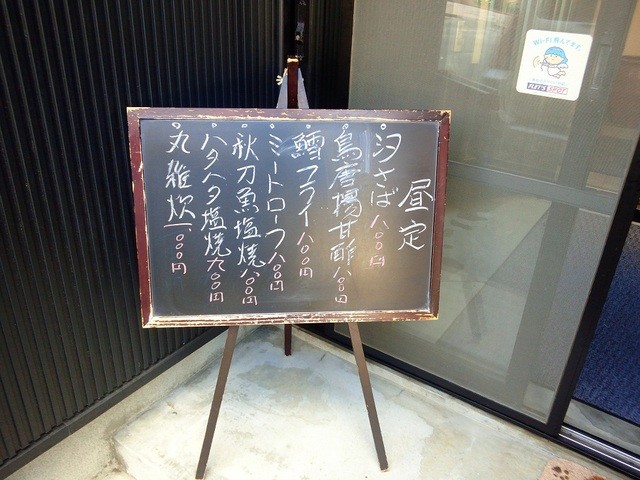 昼定
汐さば 八〇〇円
鳥唐揚甘酢 八〇〇円
鱈フライ 八〇〇円
ミートローフ 八〇〇円
秋刀魚塩焼 八〇〇円
ハタハタ塩焼 九〇〇円
丸雑炊 一、〇〇〇円
Wi-Fi、飛んでます。
FLET'S SPOT